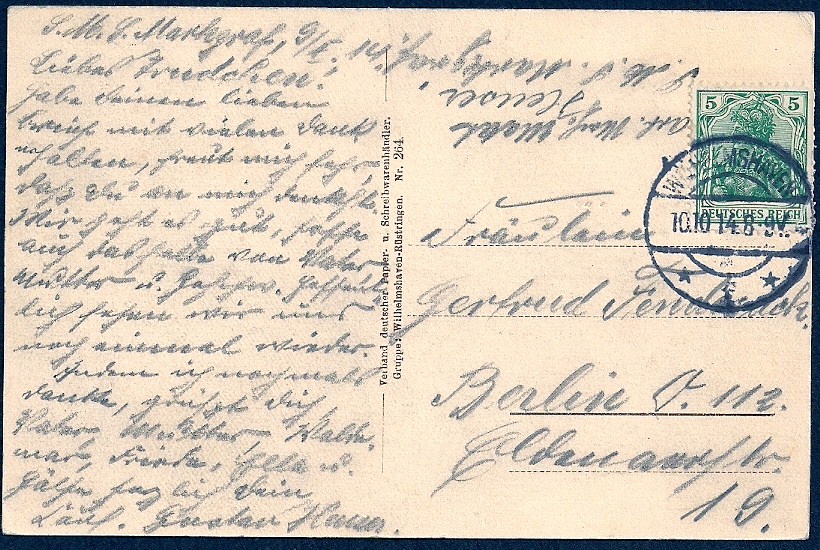 S. M. S. Markgraf, 9/X. 14.
Liebes Trudchen!
Habe Deinen lieben
Brief mit vielen Dank
erhalten, freut mich sehr,
daß Du an mich denkst.
Mir geht es gut, hoffe
auch dasselbe von Vater
Mutter u. Geschw. Hoffent-
lich sehen wir uns
noch einmal wieder.
Indem ich nochmals
danke, grüßt Dich
Vater, Mutter, Walde-
mar, Friede, Ella u.
herzlich Dein
Gustav Heuser.
Verband deutscher Papier- u. Schreibwarenhändler.
Gruppe: Wilhelmshaven-Rüstringen. Nr. 264.
S. M. S. Markgraf
Heuser
5 5
DEUTSCHES REICH
WILHELMSHAVEN
10.10 14.8-9V.
Fräulein
Gertrud
Berlin O. 112.
Eldenaerstr.
19.